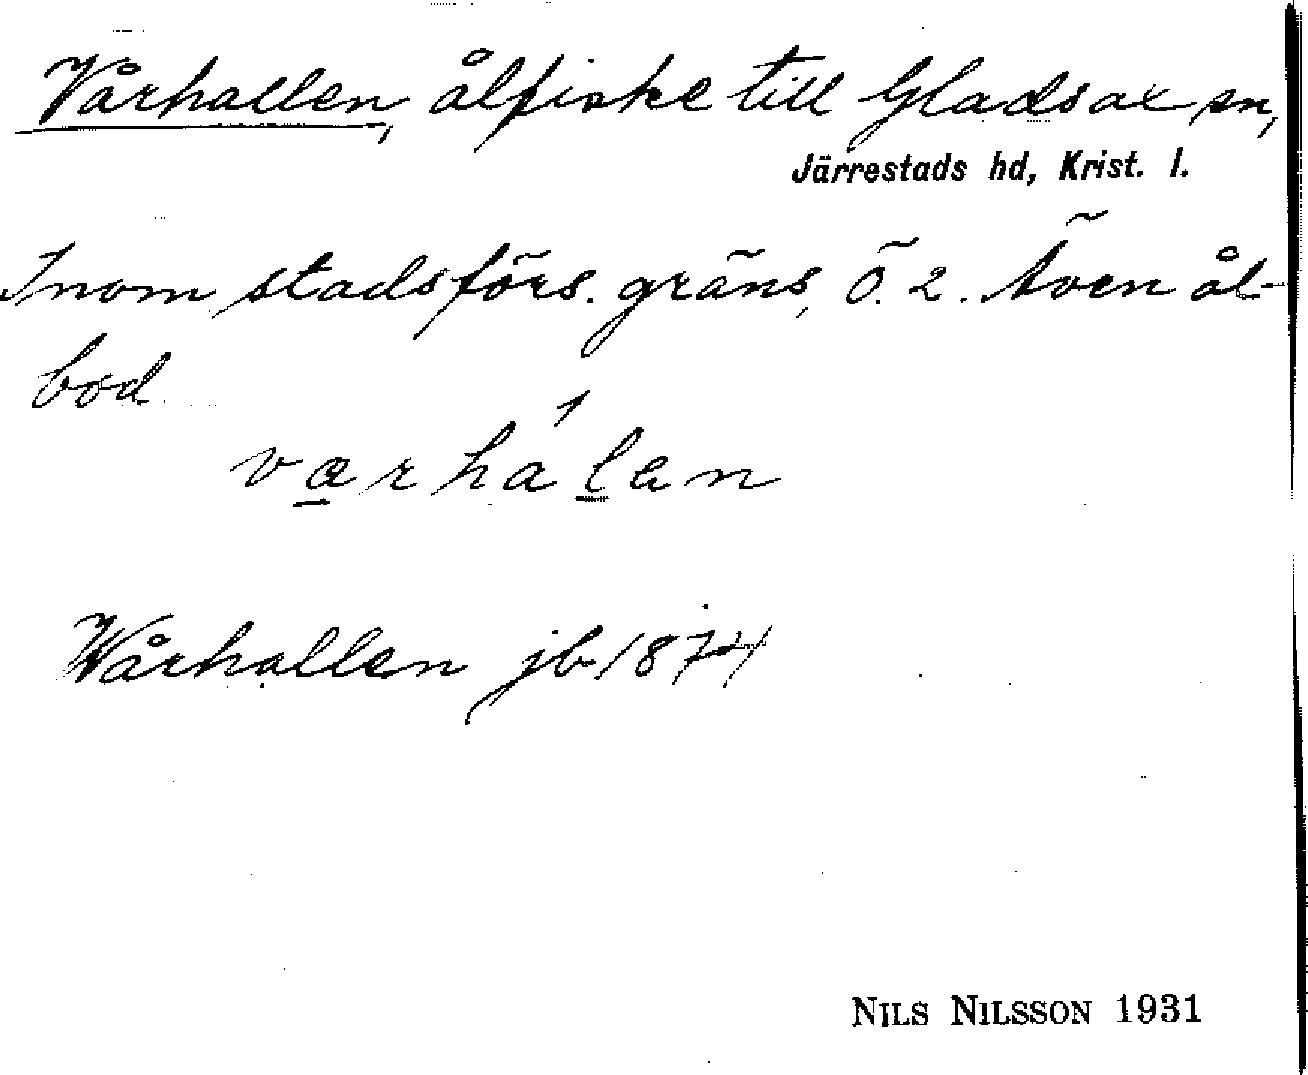 Vårhallen, ålfiske till Gladsax sn,
Järrestads hd, Krist. l.
Inom stadsförs. gräns, Ö. 2. Även ål-
bod
varhálen
Wårhallen jb 1874
NILS NILSSON 1931